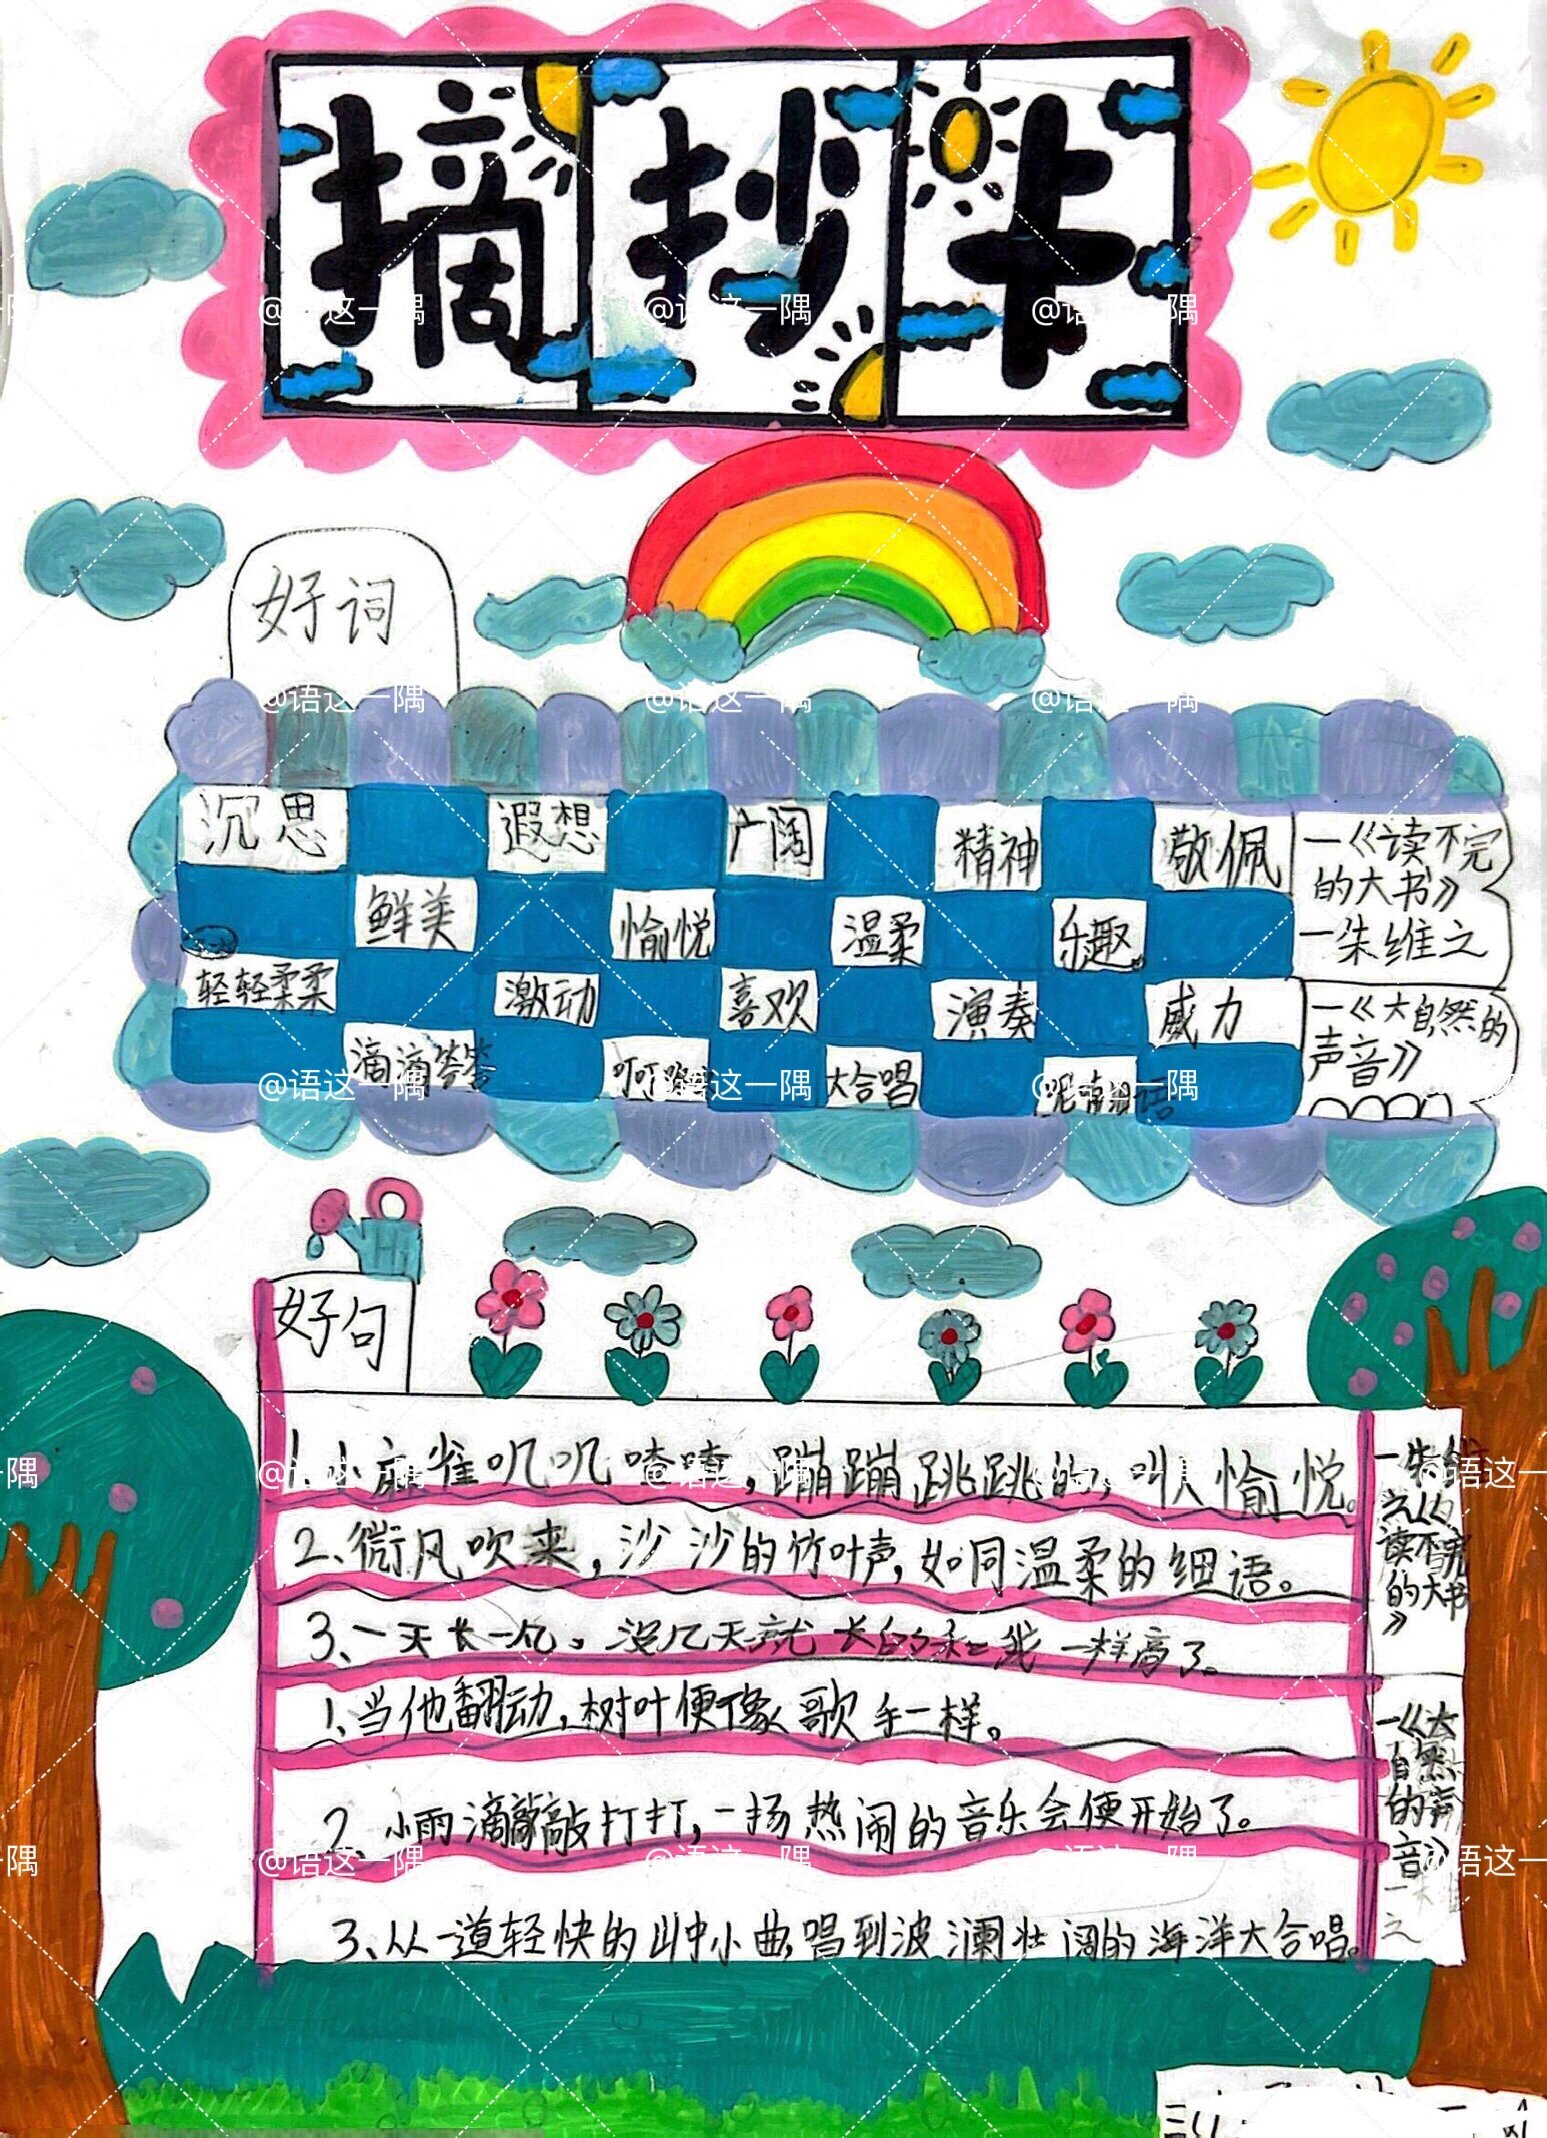 摘抄卡
好词
沉思 遐想 广阔 精神 敬佩
鲜美 愉悦 温柔 乐趣
轻轻柔柔 激动 喜欢 演奏 威力
滴滴答答 大合唱
—《读不完
的大书》
—朱维之
—《大自然的
声音》
Hi
好句
1、小麻雀叽叽喳喳,蹦蹦跳跳的,叫人愉悦。
2、微风吹来,沙沙的竹叶声,如同温柔的细语。
3、一天长一色。没几天就长的和我一样高了。
1、当他翻动,树叶便像歌手一样。
2、小雨滴敲敲打打,一场热闹的音乐会便开始了。
3、从一道轻快的山中小曲,唱到波澜壮阔的海洋大合唱。
之《
读不完
的大书
》
—《大
自然
的声
音》
之
@语这一隅